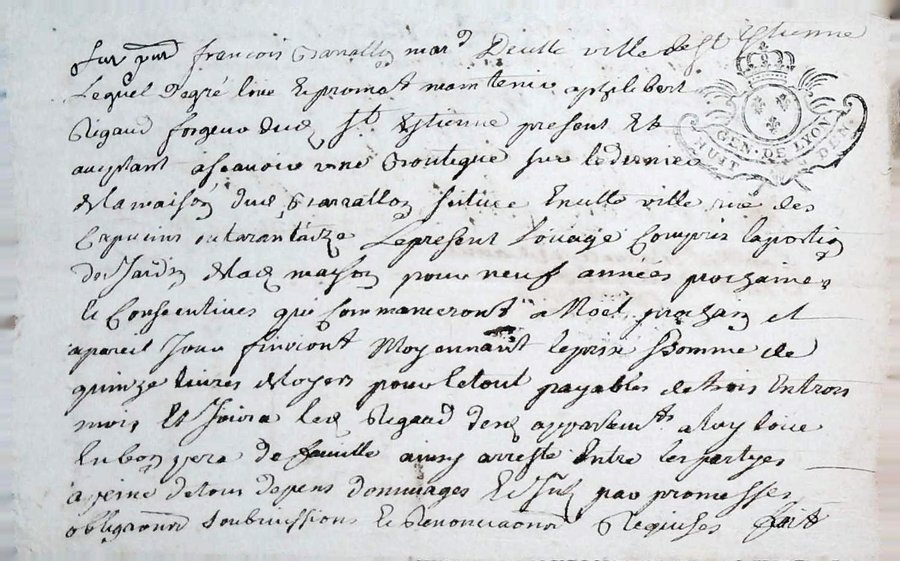 Sur pnt françois Granallon mard d'cette ville de St Estienne
Lequel de gré loue et promet maintenir a phlibert
Rigaud forgeur dud St Estienne present et
aceptant ascavoir une boutique sur le dernier
de la maison dud situee en cette ville rue des
Capucins ou tarantaize le present louage compris la portion
de Jardin de lad maison pour neuf années prochaines
et consecutives qui commanceront a Noel prochain et
a pareil jour finiront Moyennant le prix et somme de
quinze livres de loyer pour le tout payables de trois en trois
mois et Jouira led Rigaud desd appartemts a luy loué
en bon pere de famille ainsy arresté entre les partyes
a peine de tous depens dommages et par promesses
obligaons soubmissions et Renonciaons Requises fait
GEN. DE LYON
HUIT DEN